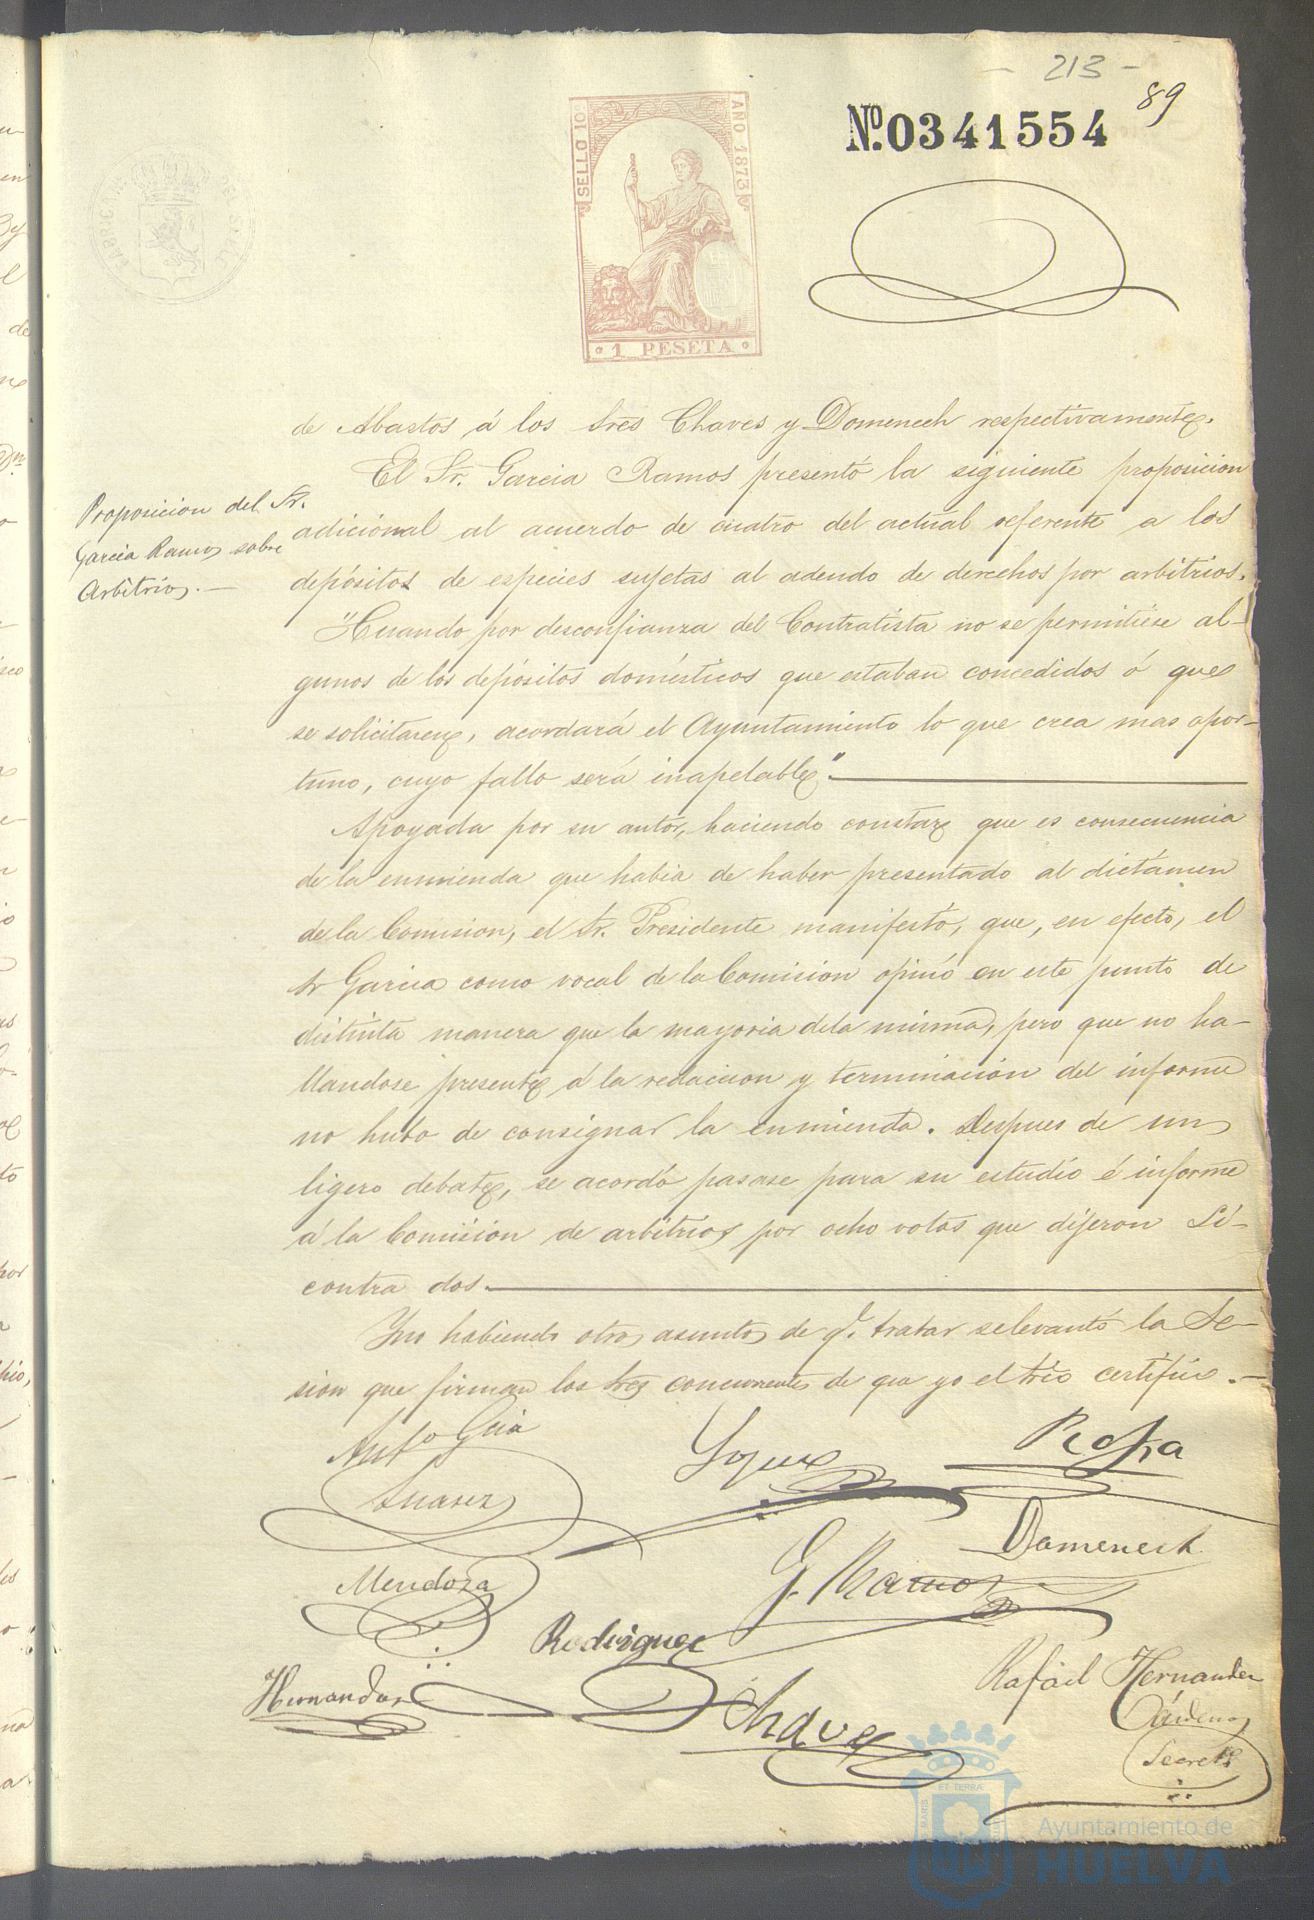 - 213 -
89
Nº.0341554
SELLO 10º
AÑO 1873
1 PESETA
FABRICA NAL. DEL SELLO
de Abastos á los Sres Chaves y Domenech respectivamente.
El Sr. Garcia Ramos presentó la siguiente proposicion
Proposicion del Sr.
Garcia Ramos sobre
Arbitrios.—
adicional al acuerdo de cuatro del actual referente a los
depósitos de especies sujetas al adeudo de derechos por arbitrios.
"Cuando por desconfianza del Contratista no se permitiese al-
gunos de los depósitos domésticos que estaban concedidos ó que
se solicitaren, acordará el Ayuntamiento lo que crea mas opor-
tuno, cuyo fallo será inapelable".
Apoyada por su autor, haciendo constar que es consecuencia
de la enmienda que habia de haber presentado al dictámen
de la Comision, el Sr. Presidente manifestó, que, en efecto, el
Sr Garcia como vocal de la Comision opinó en este punto de
distinta manera que la mayoria de la misma, pero que no ha-
llandose presente á la redaccion y terminación del informe
no hubo de consignar la enmienda. Despues de un
ligero debate, se acordó pasase para su estudio é informe
á la Comisión de arbitrios por ocho votos que dijeron Sí-
contra dos.
Y no habiendo otros asuntos de q.e tratar se levantó la Se-
sion que firman los Sres concurrentes de que yo el Srio certifico.—
Ant.o Gcia
Suarez
Rofa
Domenech
Mendoza
G. Ramos
Rodriguez
Hernandez
Chaves
Rafael Hernandez
Cárdenas
Secret.o
ET TERRÆ
Ayuntamiento de
HUELVA